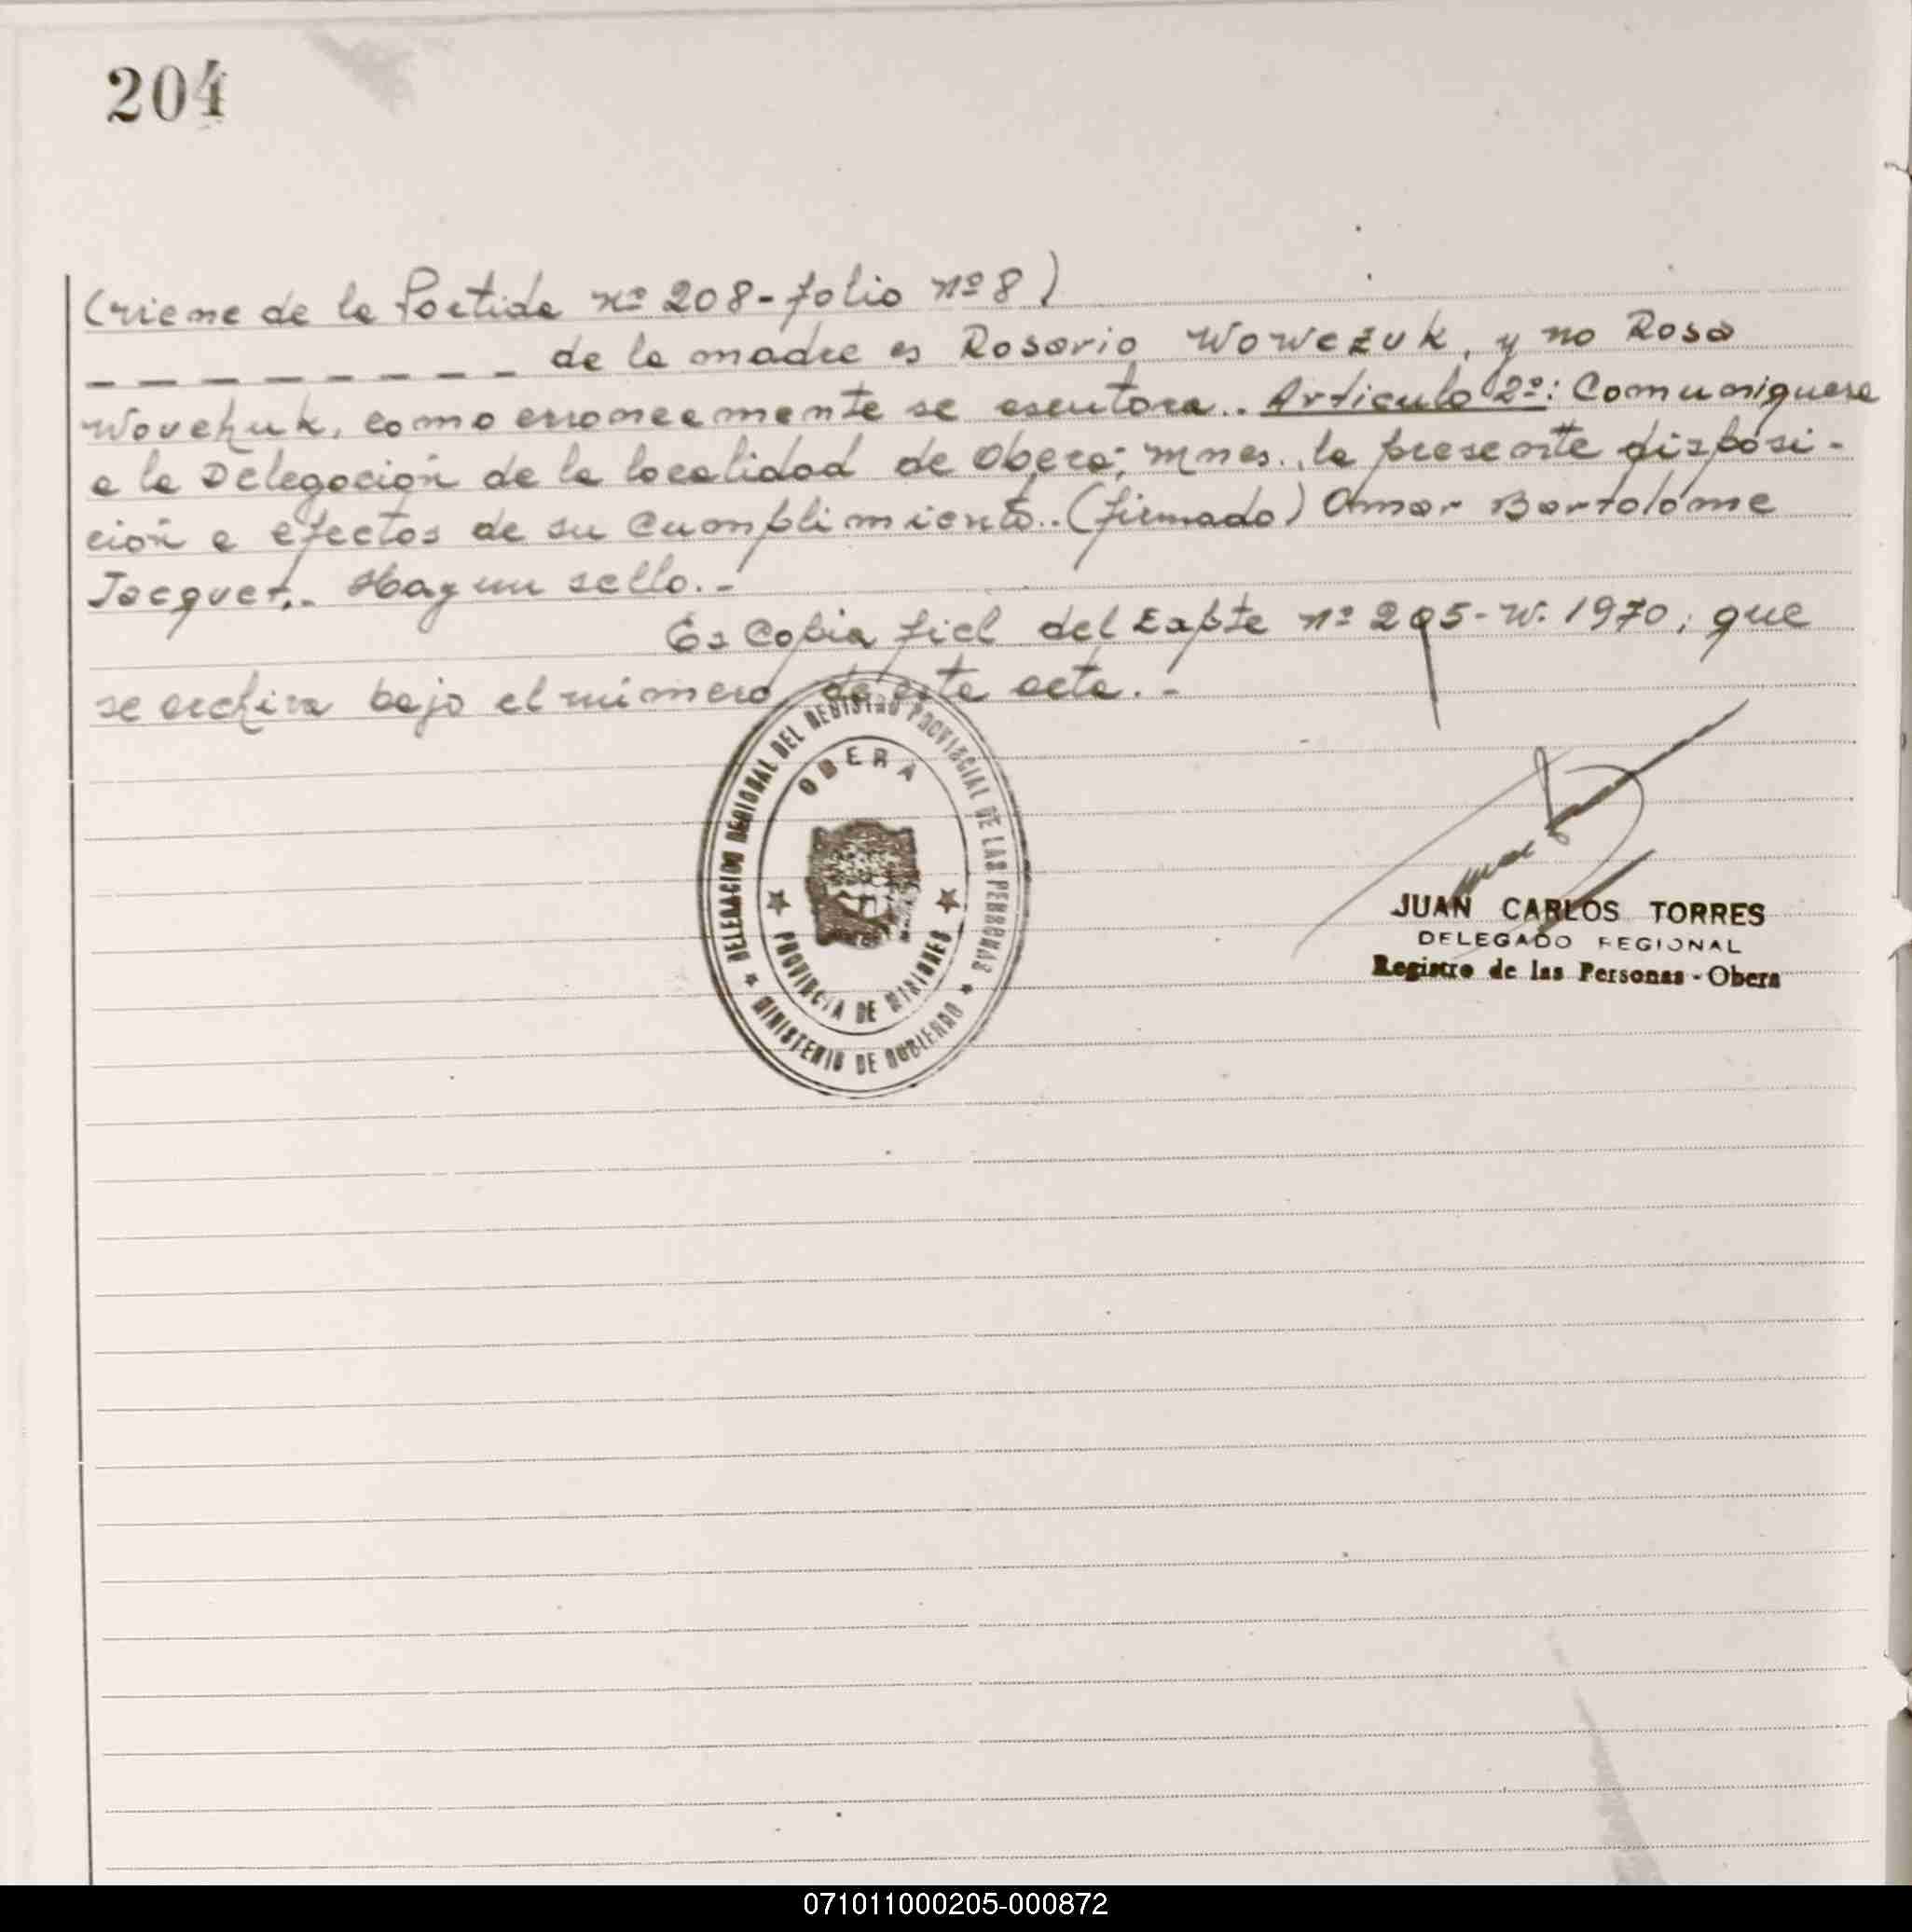 204
(viene de la Partida nº 208-folio nº 8)
_ _ _ _ _ _ _ _ _ de la madre es Rosario Wowczuk, y no Rosa
Wovchuk, como erroneamente se asentara.. Articulo 2º: Comuniquese
a la Delegación de la localidad de Obera; Mnes., la presente disposi-
ción a efectos de su cumplimiento.. (firmado) Omar Bartolome
Jacquet.- Hay un sello.-
Es Copia fiel del Expte nº 295-W. 1970, que
se archiva bajo el número de este acta.-
DELEGACION REGIONAL DEL REGISTRO PROVINCIAL DE LAS PERSONAS
OBERA
PROVINCIA DE MISIONES
MINISTERIO DE GOBIERNO
JUAN CARLOS TORRES
DELEGADO REGIONAL
Registro de las Personas - Obera
071011000205-000872